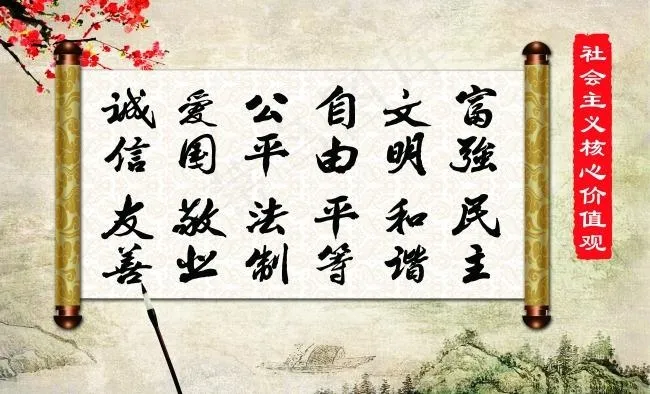 社会主义核心价值观
富強民主
文明和谐
自由平等
公平法制
愛国敬业
誠信友善